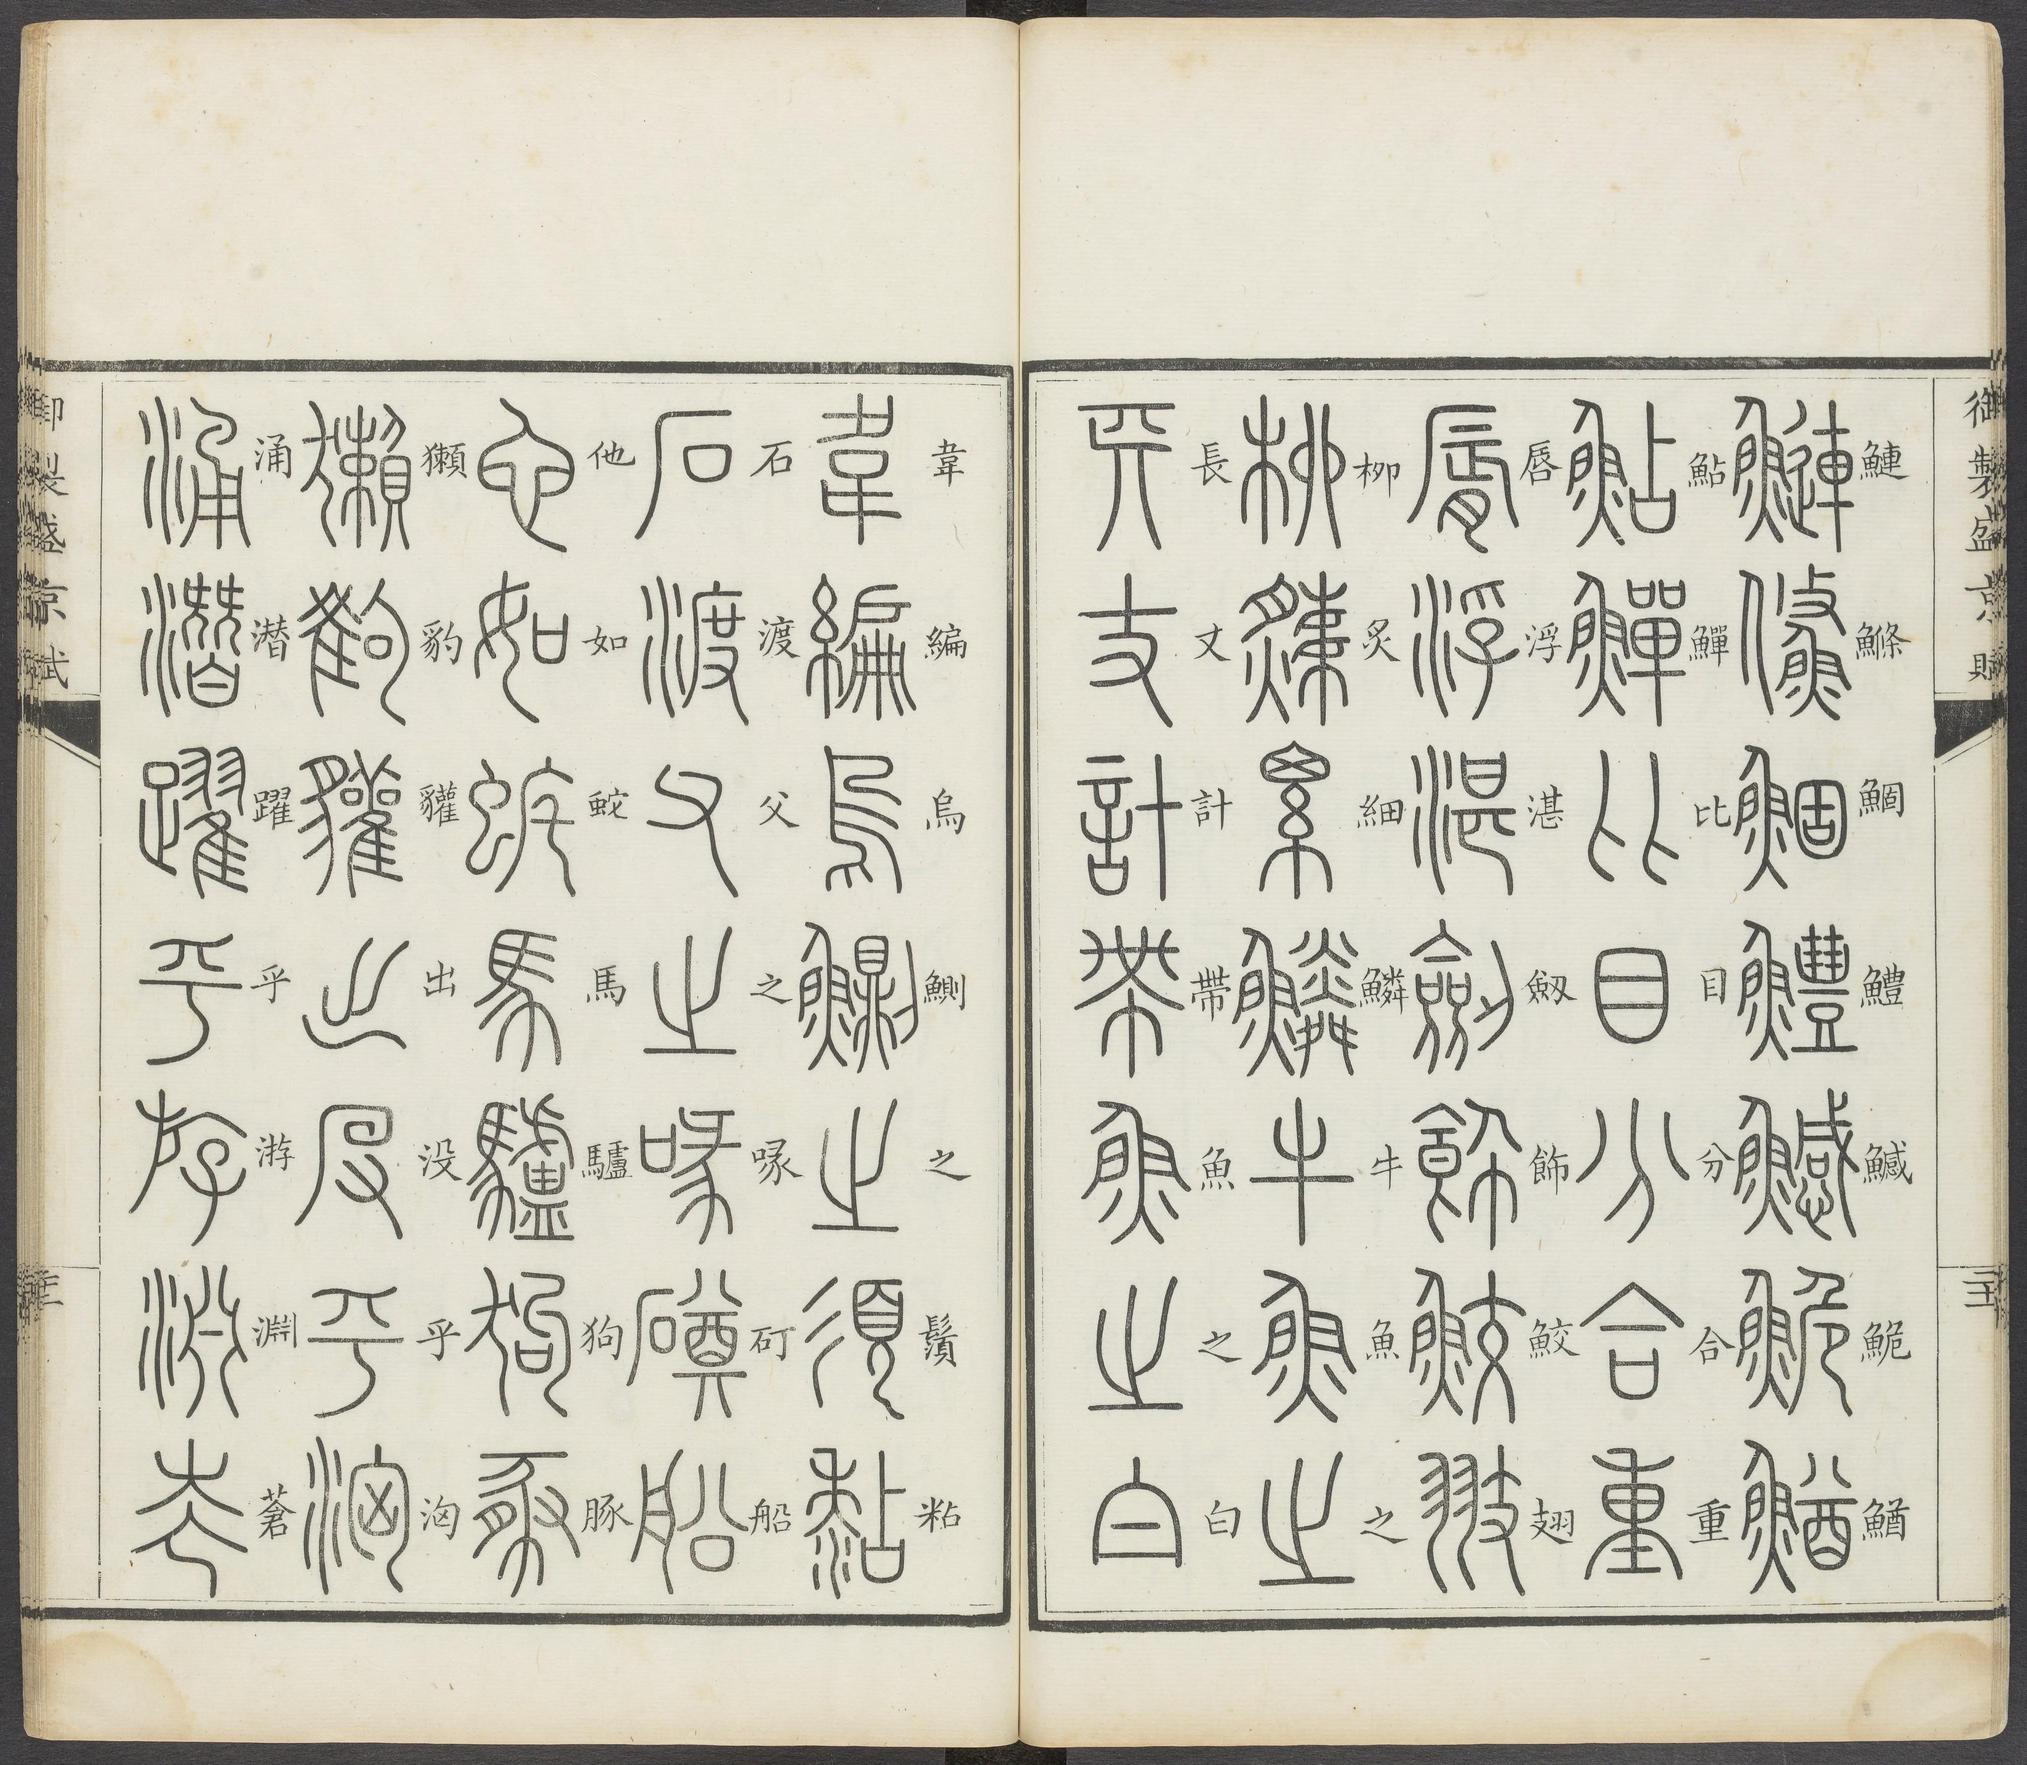 御製盛京賦
鰱鰷鯝鱧鱤鮠鰌
鮎鱓比目分合重
唇浮湛劔飾鮫翅
柳炙細鱗牛魚之
長丈計帶魚之白
韋編烏鰂之鬚粘
石渡父之喙矴船
他如蛇馬驢狗豚
獺豹貛出没乎洶
涌潛躍乎游淵蒼
御製盛京賦